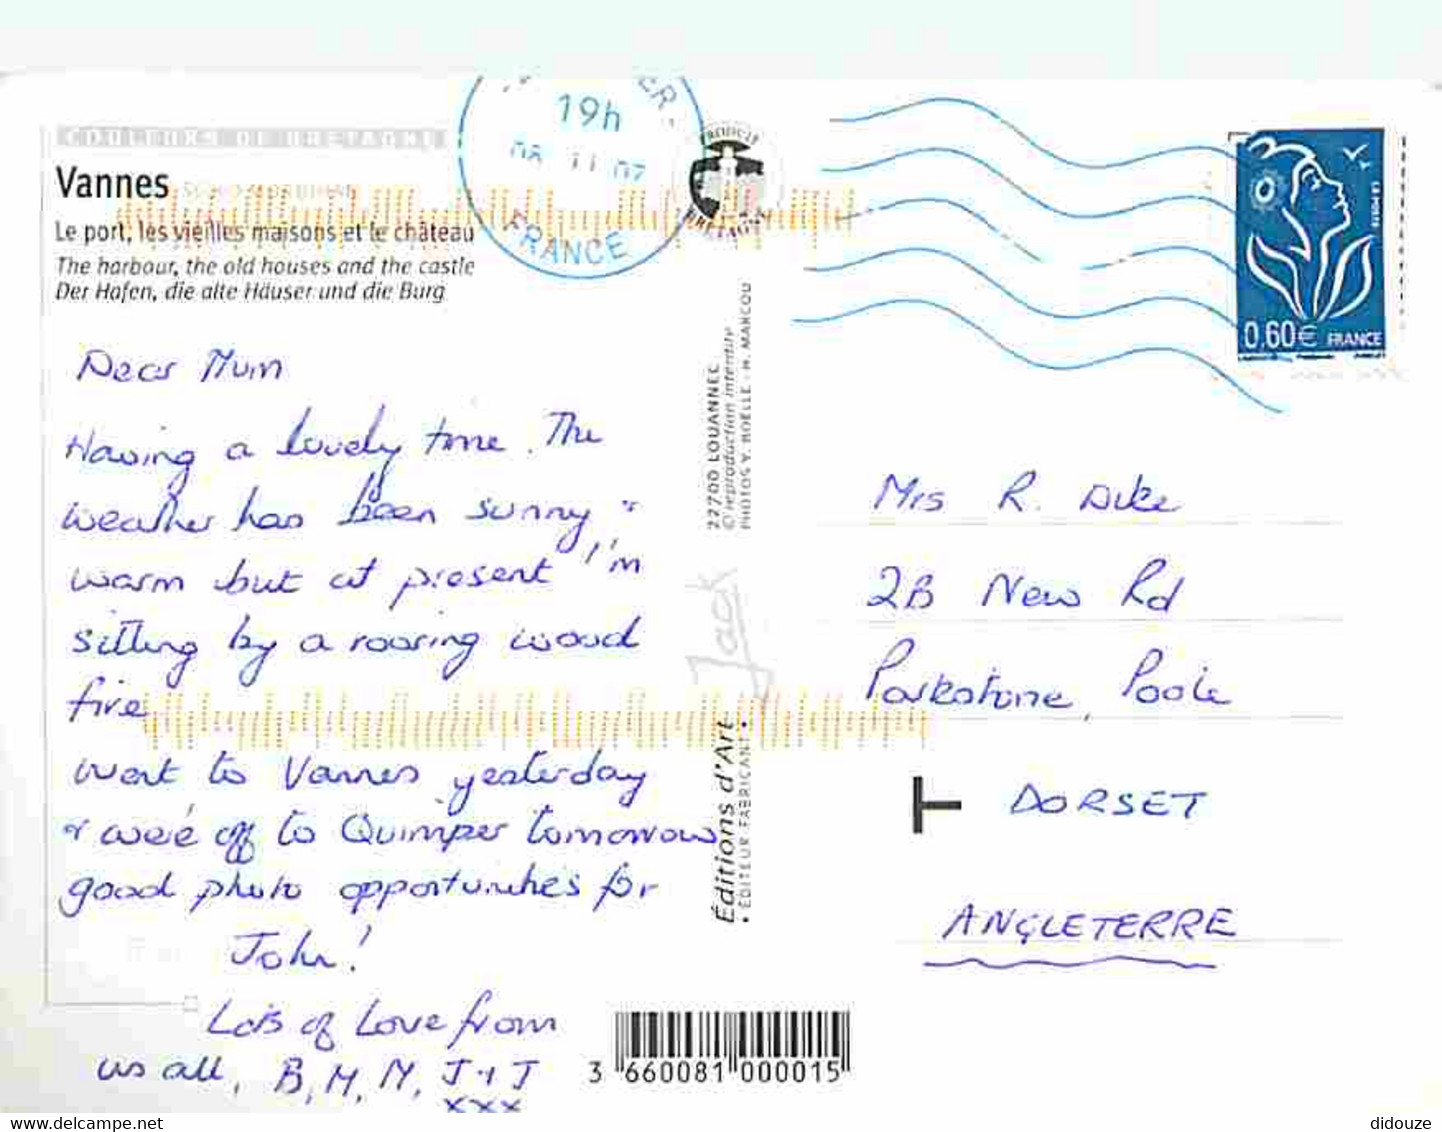 COULEURS DE BRETAGNE
Vannes
Le port, les vieilles maisons et le château
The harbour, the old houses and the castle
Der Hafen, die alte Häuser und die Burg
Dear Mum
Having a lovely time. The
weather has been sunny &
warm but at present I'm
sitting by a roaring wood
fire
Went to Vannes yesterday
& we're off to Quimper tomorrow
good photo opportunities for
John!
Lots of Love from
us all, B, M, M, J + J
xxx
19h
06 11 07
FRANCE
PRODUIT
BRETAGNE
22700 LOUANNEC
© reproduction interdite
PHOTOS Y. BOËLLE - H. MARCOU
Jack
Éditions d'Art
• ÉDITEUR FABRICANT •
3 660081 000015
0,60€ FRANCE
Mrs R. Dike
2B New Rd
Parkstone, Poole
T DORSET
ANGLETERRE
www.delcampe.net
didouze